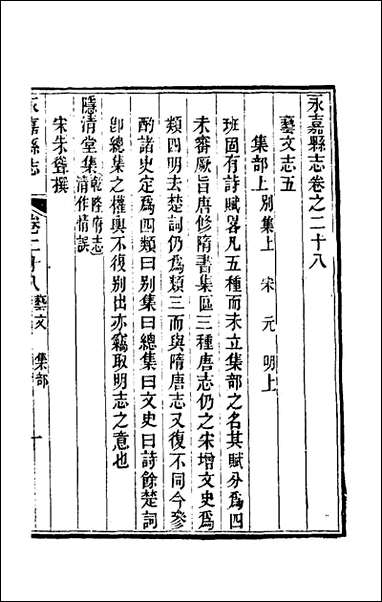 永嘉縣志卷之二十八
藝文志五
集部上 別集上 宋 元 明上
班固有詩賦畧凡五種而未立集部之名其賦分爲四
未審厥旨唐修隋書集區三種唐志仍之宋增文史爲
類四明去楚詞仍爲類三而與隋唐志又復不同今叅
酌諸史定爲四類曰別集曰總集曰文史曰詩餘楚詞
卽總集之權輿不復別出亦竊取明志之意也
隱清堂集 乾隆府志清作情誤
宋朱聳撰
永嘉縣志 卷二十八 藝文 集部 一